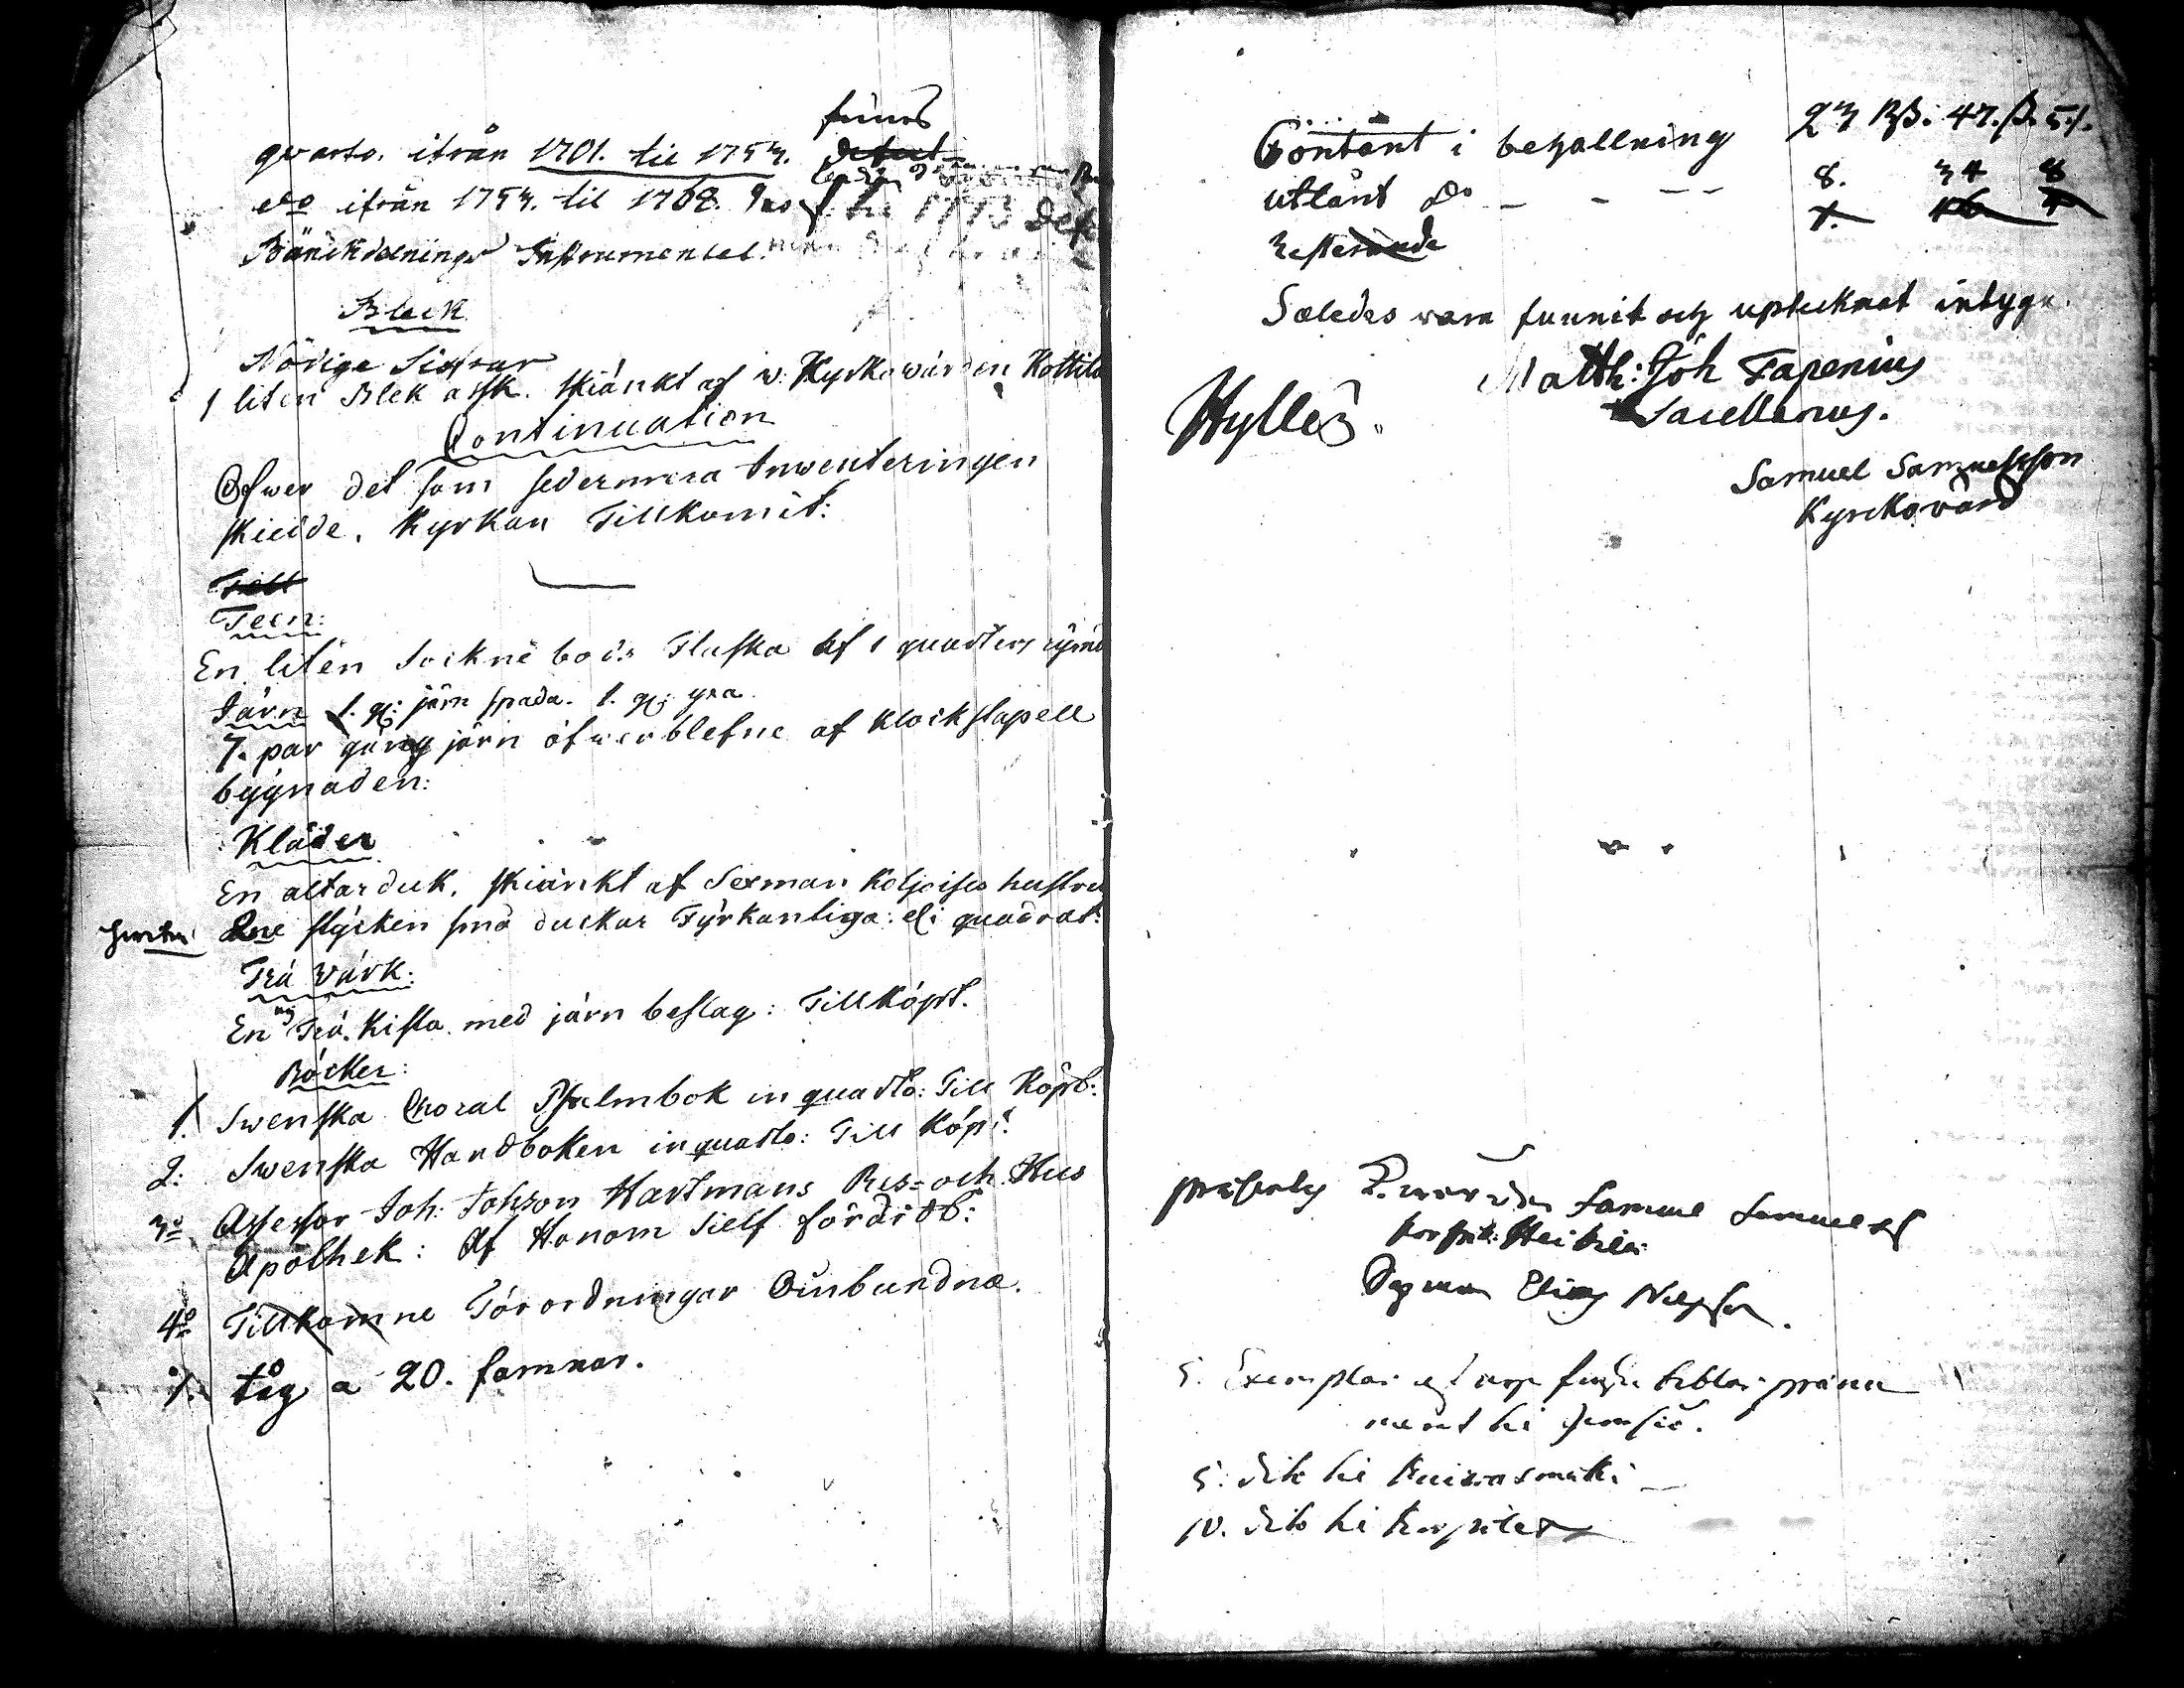 finnes
qvarto. ifrån 1701. til 1753. defect
do ifrån 1753. til 1768.
Bänckdelnings Instrumentet.
Bleck
Nödige Siffror
1 liten Blek ask. skiänkt af w. Kyrkowärden Kottila
Continuation
Öfwer det som sedermera Inwenteringen
skiedde, Kyrkan Tillkomit:
Teen:
En liten Sockne bods Flaska af 1 quarters rým
Järn 1. st: järn spada. 1. st: yxa
7. par gång järn öfwerblefne af Klockstapell
býgnaden:
Kläder
En altarduk, skiänkt af Sexman Koljoises hustru
2ne stýcken små duckar Fýrkantiga: el: quadrat:
Trä Värk:
En ny Trä. Kista med järn beslag: Tillköpt.
Böcker:
1. Swenska Choral Psalmbok in quarto: Till Köpt:
2: Swenska Handboken in quarto: Till Köpt:
3o Assessor Joh: Johson Hartmans Res= och Hus
Apothek: Af Honom Sielf förärdt:
4o Tillkomne Förordningar Oinbundna.
1. tåg a 20. famnar.
Contant i behallning 23 Rß: 47. ß. 5 1.
utlånt do — - — 8. 34 8
7. 46 7
Resterande
Sæledes vara funnit och upteknat intyga.
Matth: Joh Fapenius
Sacellanus.
Hyllen.
Samuel Samuelsson
Kyrckovärd
K. wärden Samuel Samuels
Heikilä
Elias Nilsson.
5. Exemplar af nya finska biblar
5. dito
10. dito